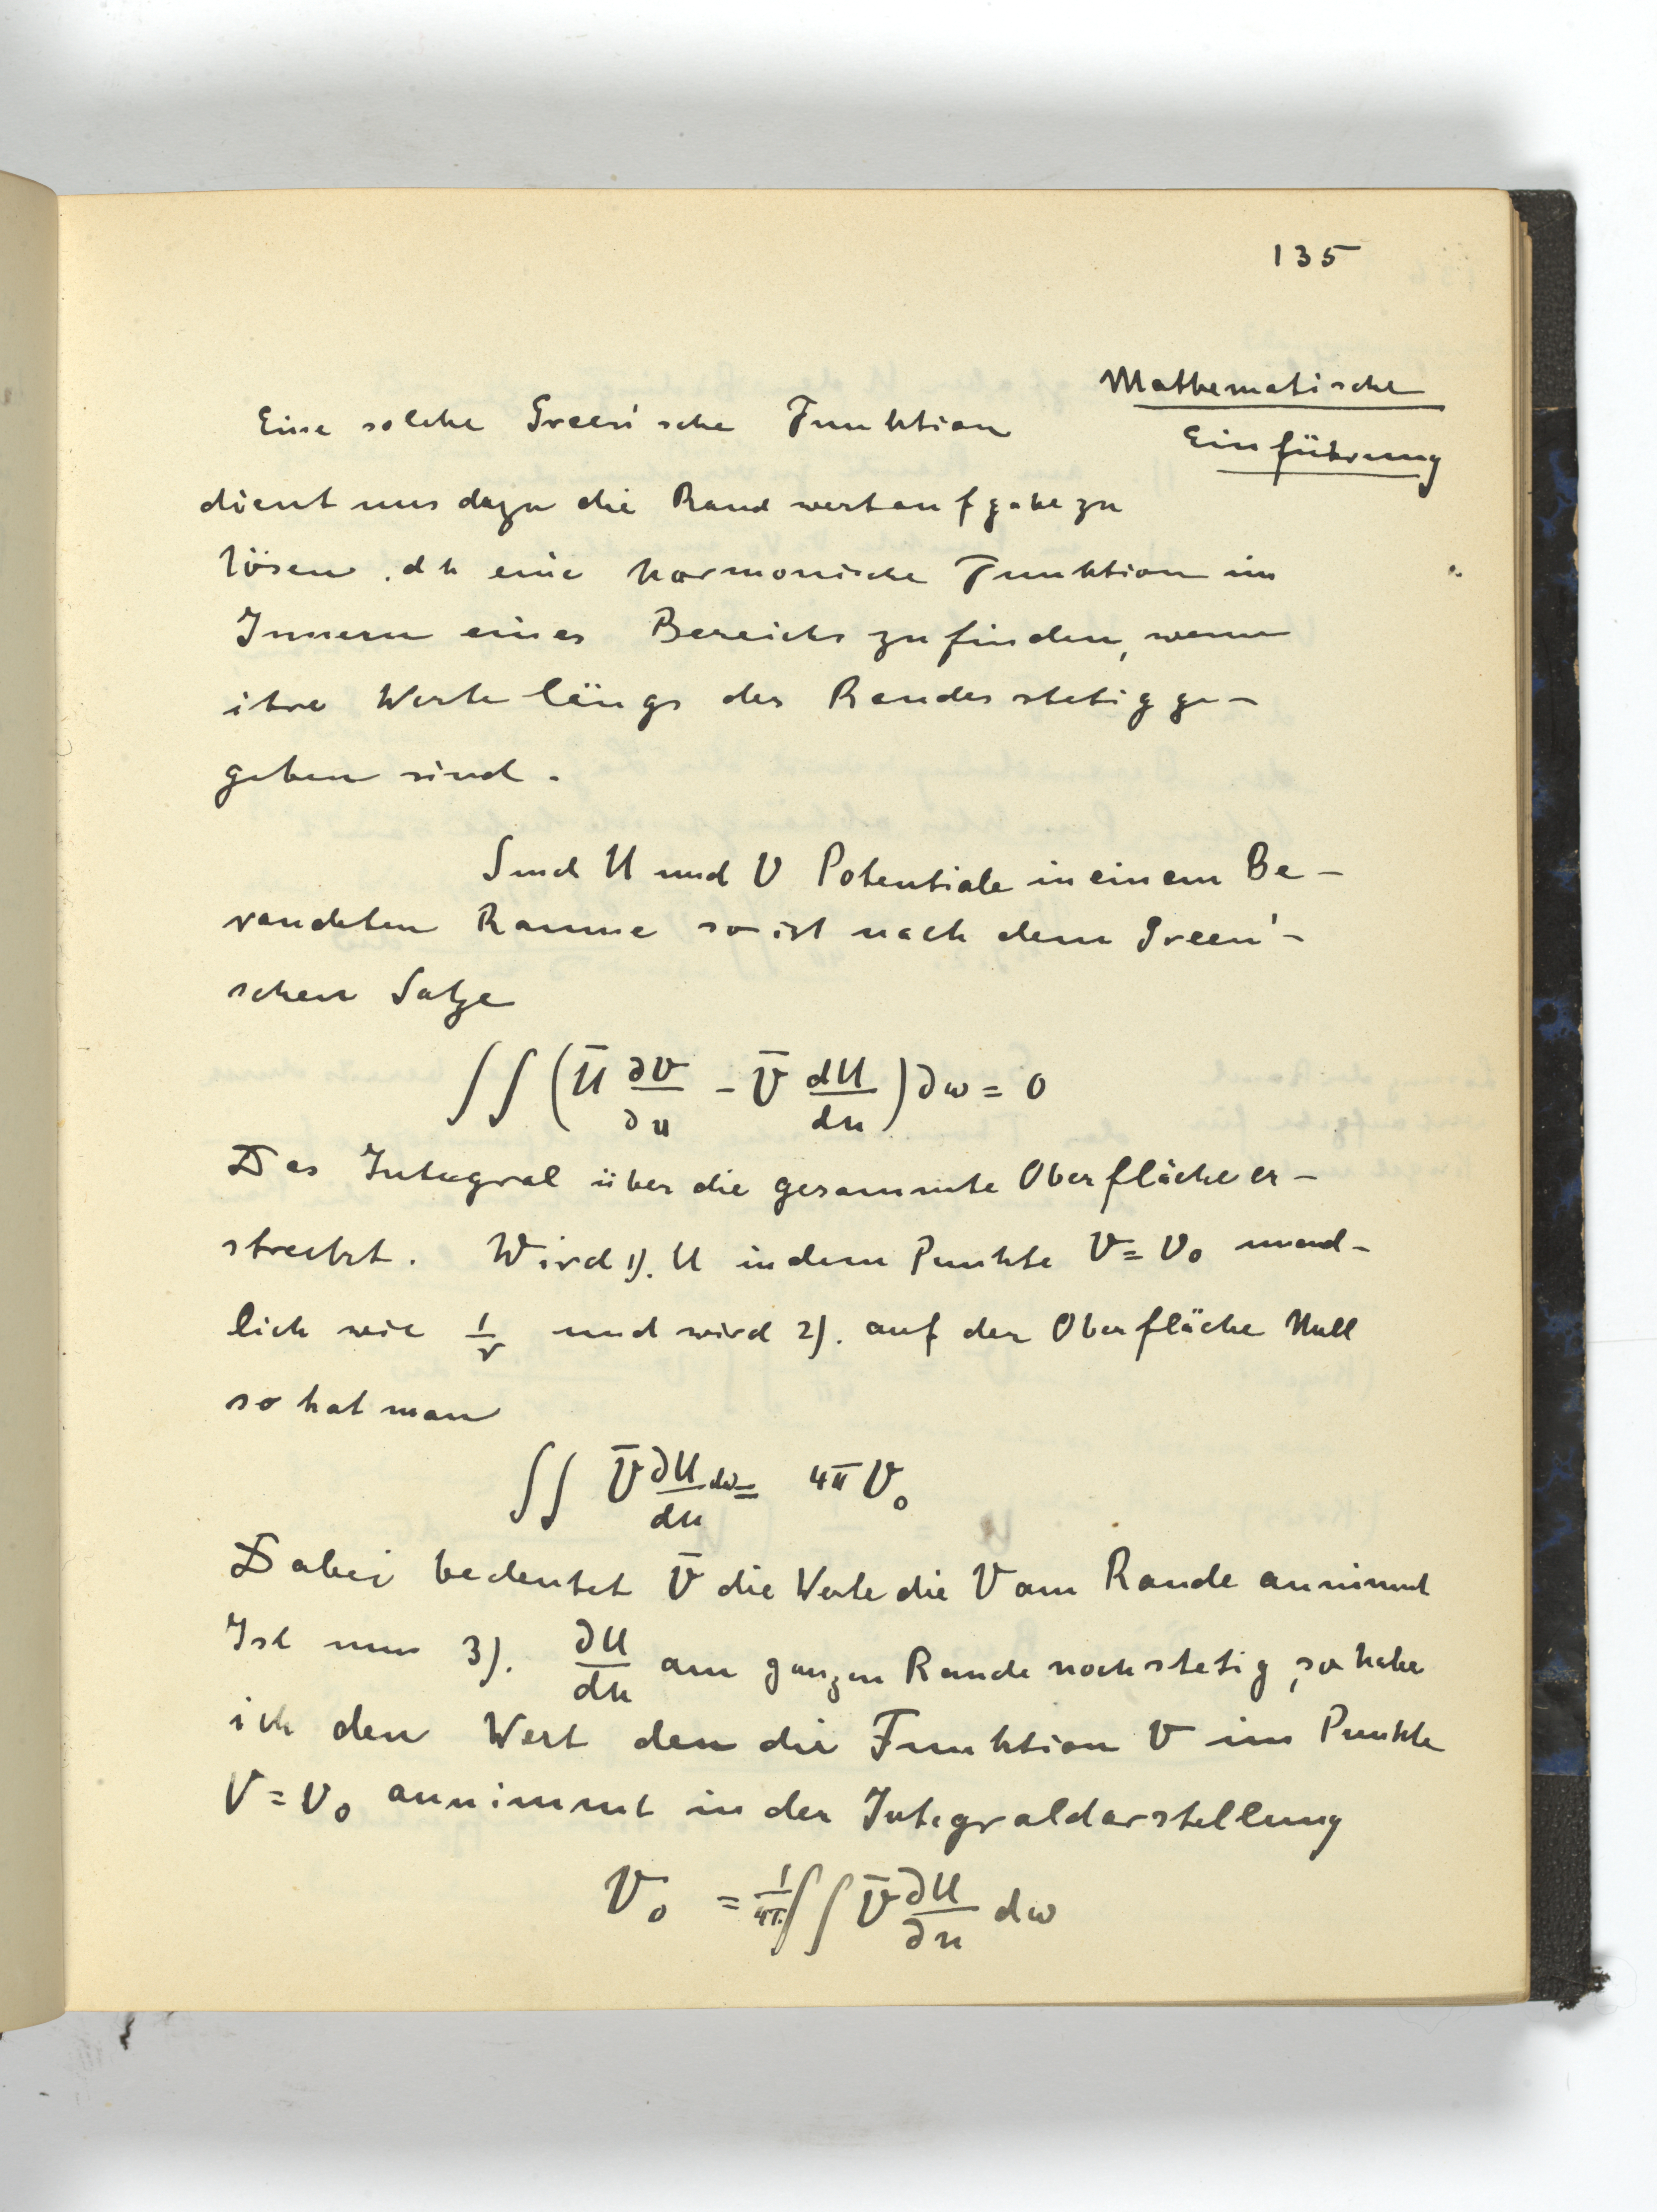 135
Mathematische
Einführung
Eine solche Green'sche Funktion
dient uns dazu die Randwertaufgabe zu
lösen, dh eine harmonische Funktion im
Innern eines Bereichs zu finden, wenn
ihre Werte längs des Randes stetig ge-
geben sind.
Sind U und V Potentiale in einem Be-
randeten Raume so ist nach dem Green'-
schen Satze
∫∫ (Ū ∂V/∂n - V̄ dU/dn) ∂ω = 0
Das Integral über die gesammte Oberfläche er-
streckt. Wird 1). U in dem Punkte V = V₀ unend-
lich wie 1/r und wird 2). auf der Oberfläche Null
so hat man
∫∫ V̄ ∂U/dn dω = 4π V₀
Dabei bedeutet V̄ die Werte die V am Rande annimmt
Ist nun 3). ∂U/dn am ganzen Rande noch stetig, so habe
ich den Wert den die Funktion V im Punkte
V = V₀ annimmt in der Integraldarstellung
V₀ = 1/4π ∫∫ V̄ ∂U/∂n dω